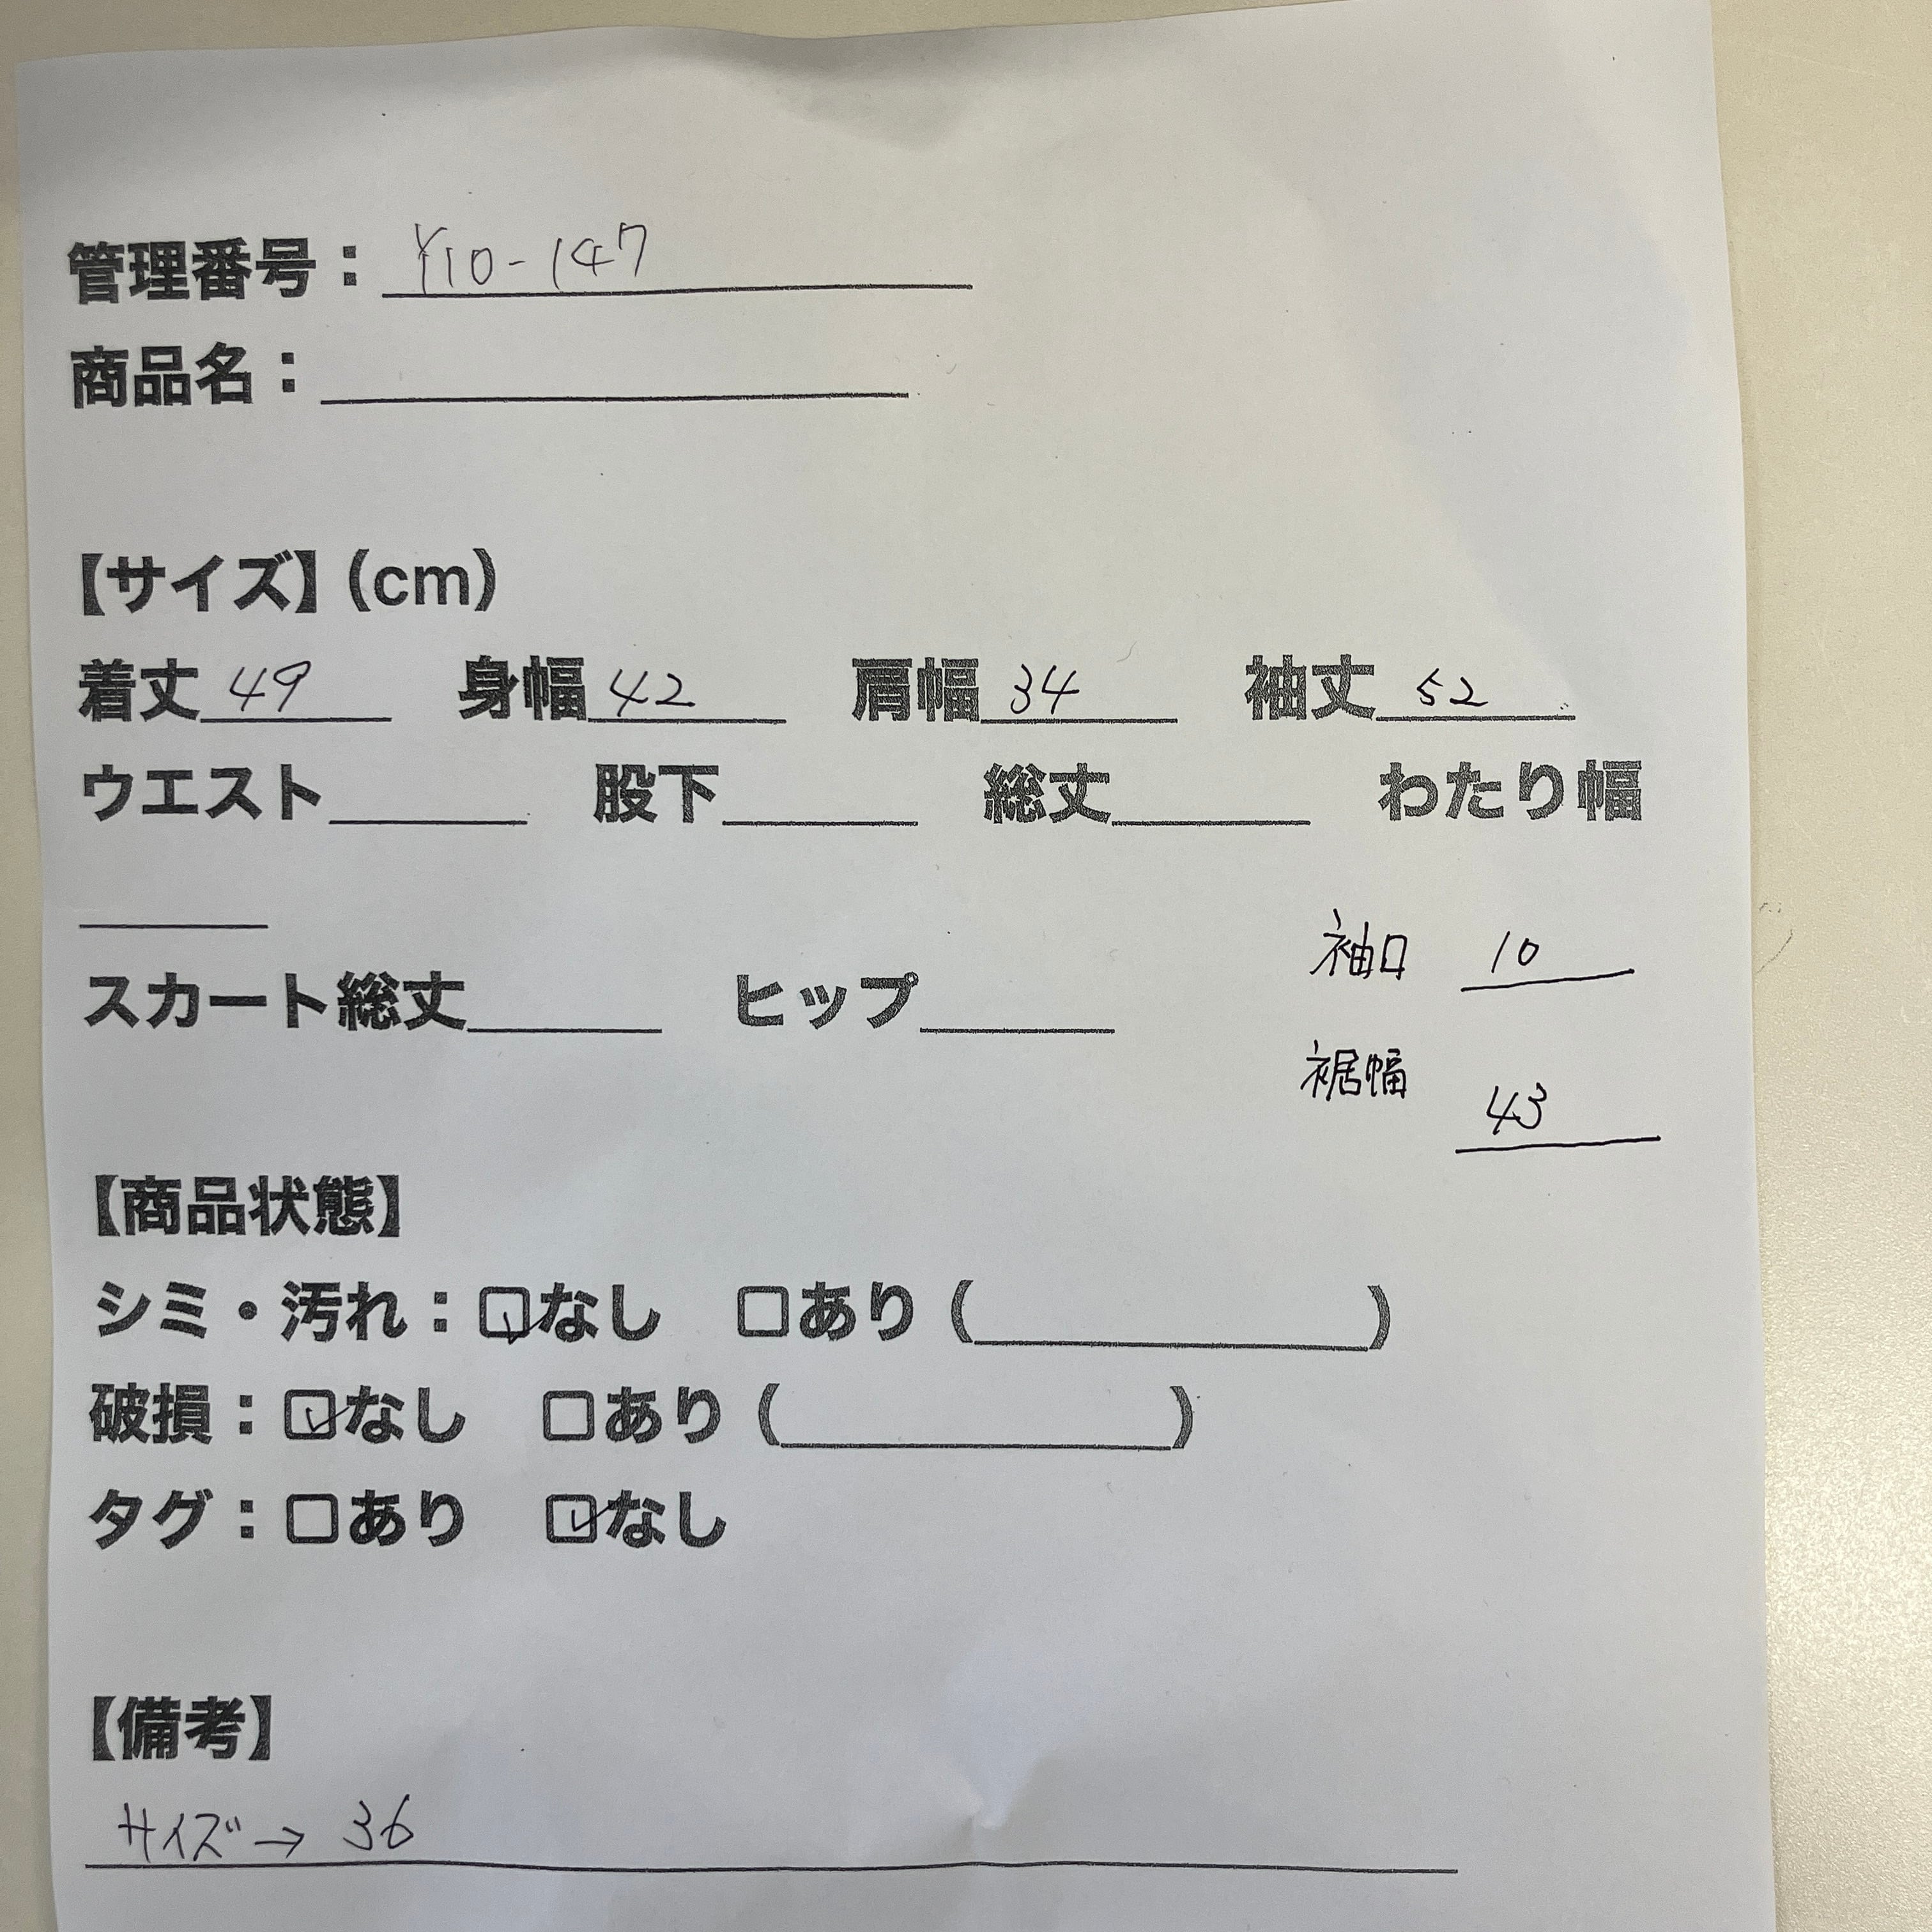 管理番号：Y10-147
商品名：
【サイズ】(cm)
着丈 49 身幅 42 肩幅 34 袖丈 52
ウエスト 股下 総丈 わたり幅
袖口 10
スカート総丈 ヒップ
裾幅 43
【商品状態】
シミ・汚れ：☑なし □あり（ ）
破損：☑なし □あり（ ）
タグ：□あり ☑なし
【備考】
サイズ→36